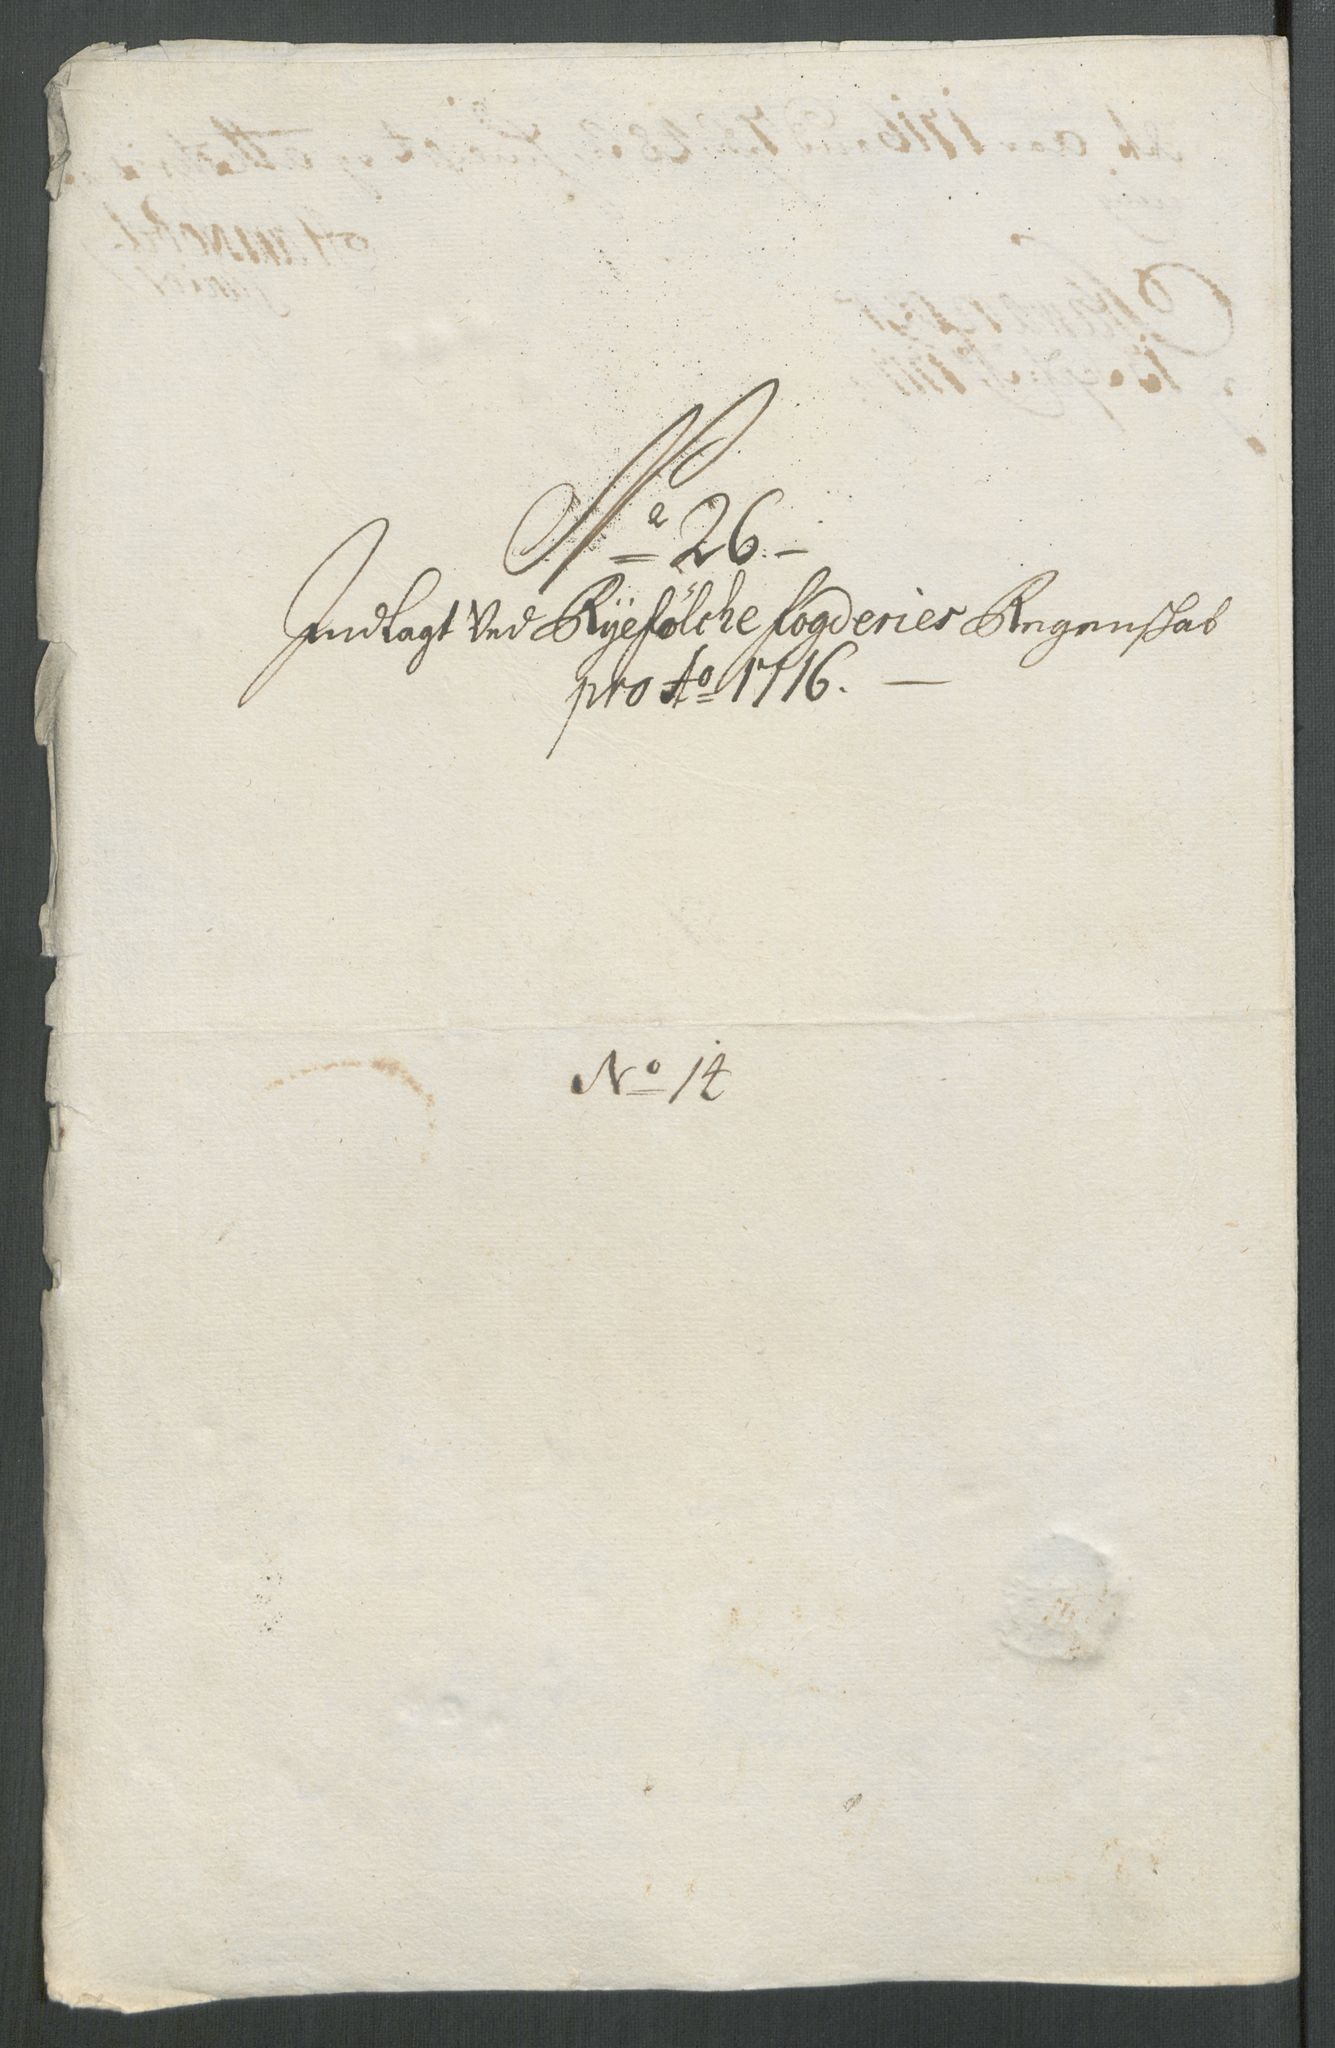 No 26.
Indlagt Ved Ryefölche fogderies Regenskab
pro Ao 1716.
No 14